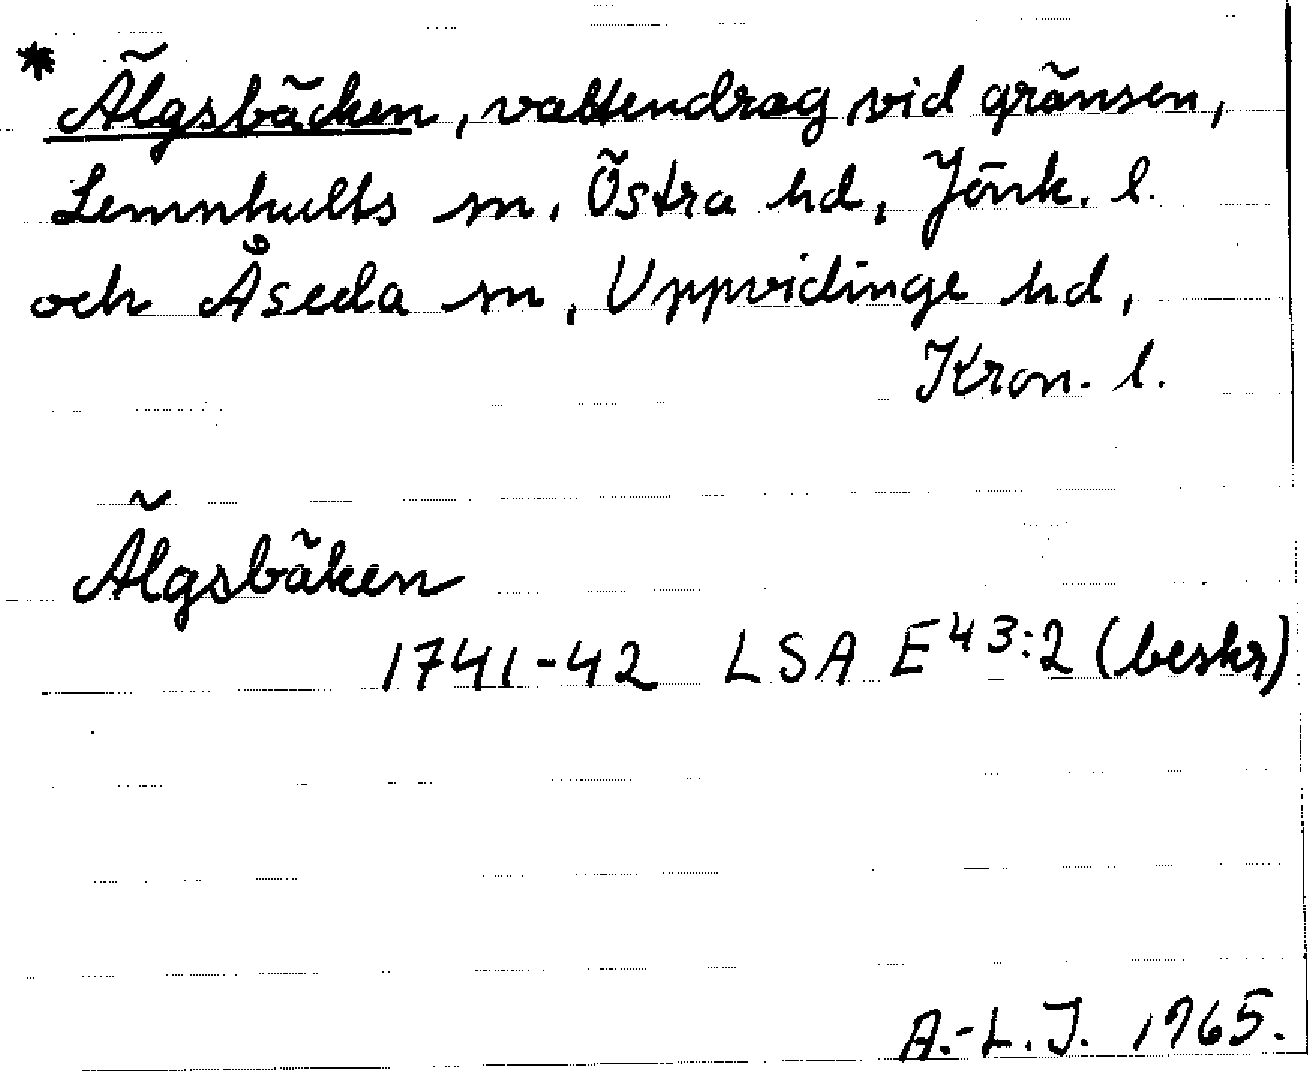 * Älgsbäcken, vattendrag vid gränsen,
Lemnhults sn, Östra hd, Jönk. l.
och Åseda sn, Uppvidinge hd,
Kron. l.
Älgsbäken
1741-42 LSA E43:2 (beskr)
A.-L.J. 1965.